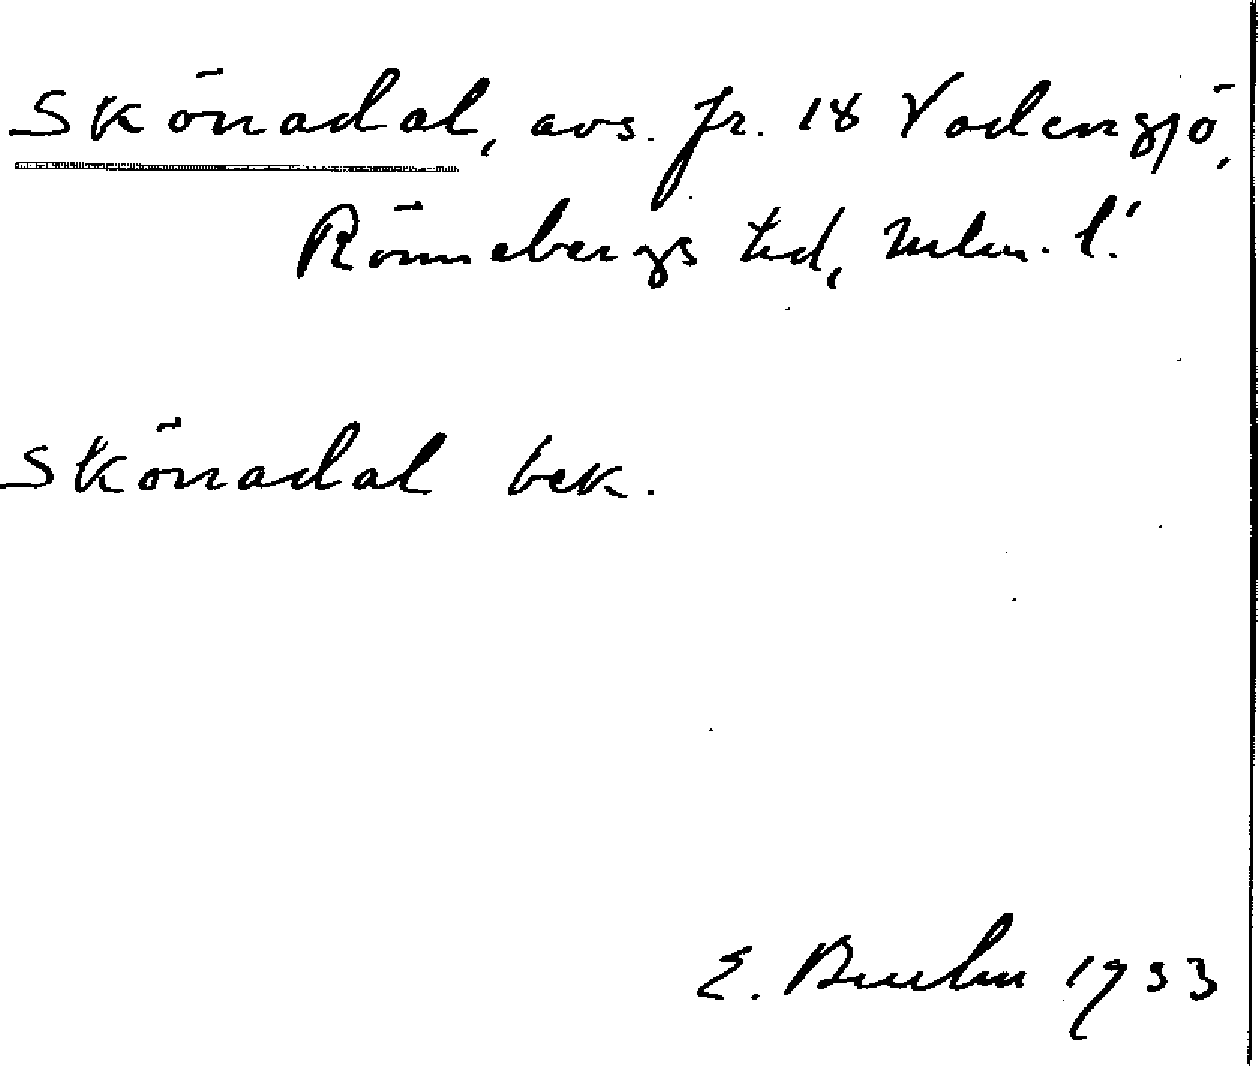 Skönadal, avs. fr. 18 Vadensjö,
Rönnebergs hd, Mlm. l.
Skönadal bek.
E. 1933